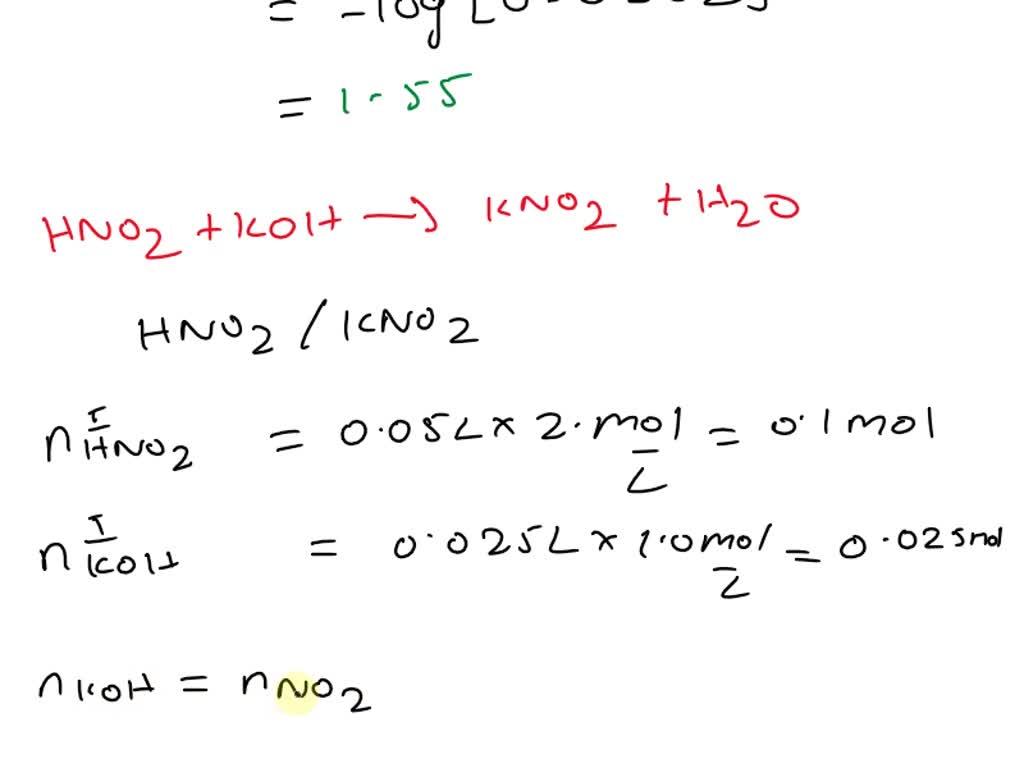 = -log [
= 1.55
HNO2 + KOH → KNO2 + H2O
HNO2 / KNO2
n I HNO2 = 0.05L × 2. mol/L = 0.1 mol
n I KOH = 0.025L × 1.0 mol/L = 0.025 mol
n KOH = n NO2